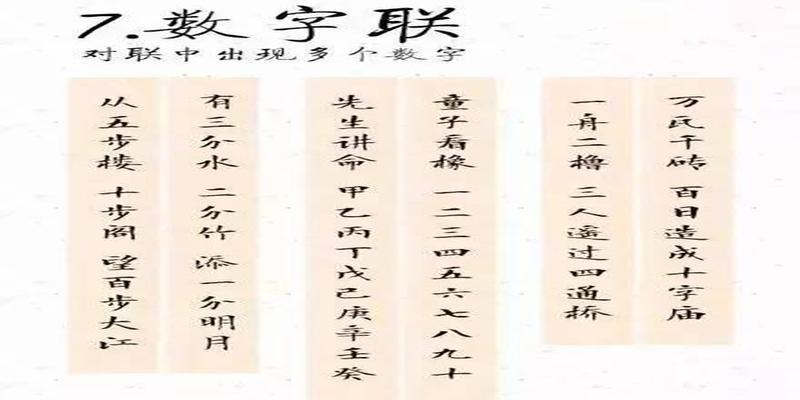 7.数字联
对联中出现多个数字
万氏千砖 百日造成十字庙
一舟二橹 三人遥过四通桥
童子看橡 一二三四五六七八九十
先生讲命 甲乙丙丁戊己庚辛壬癸
有三分水 二分竹 添一分明月
从五步楼 十步阁 望百步大江